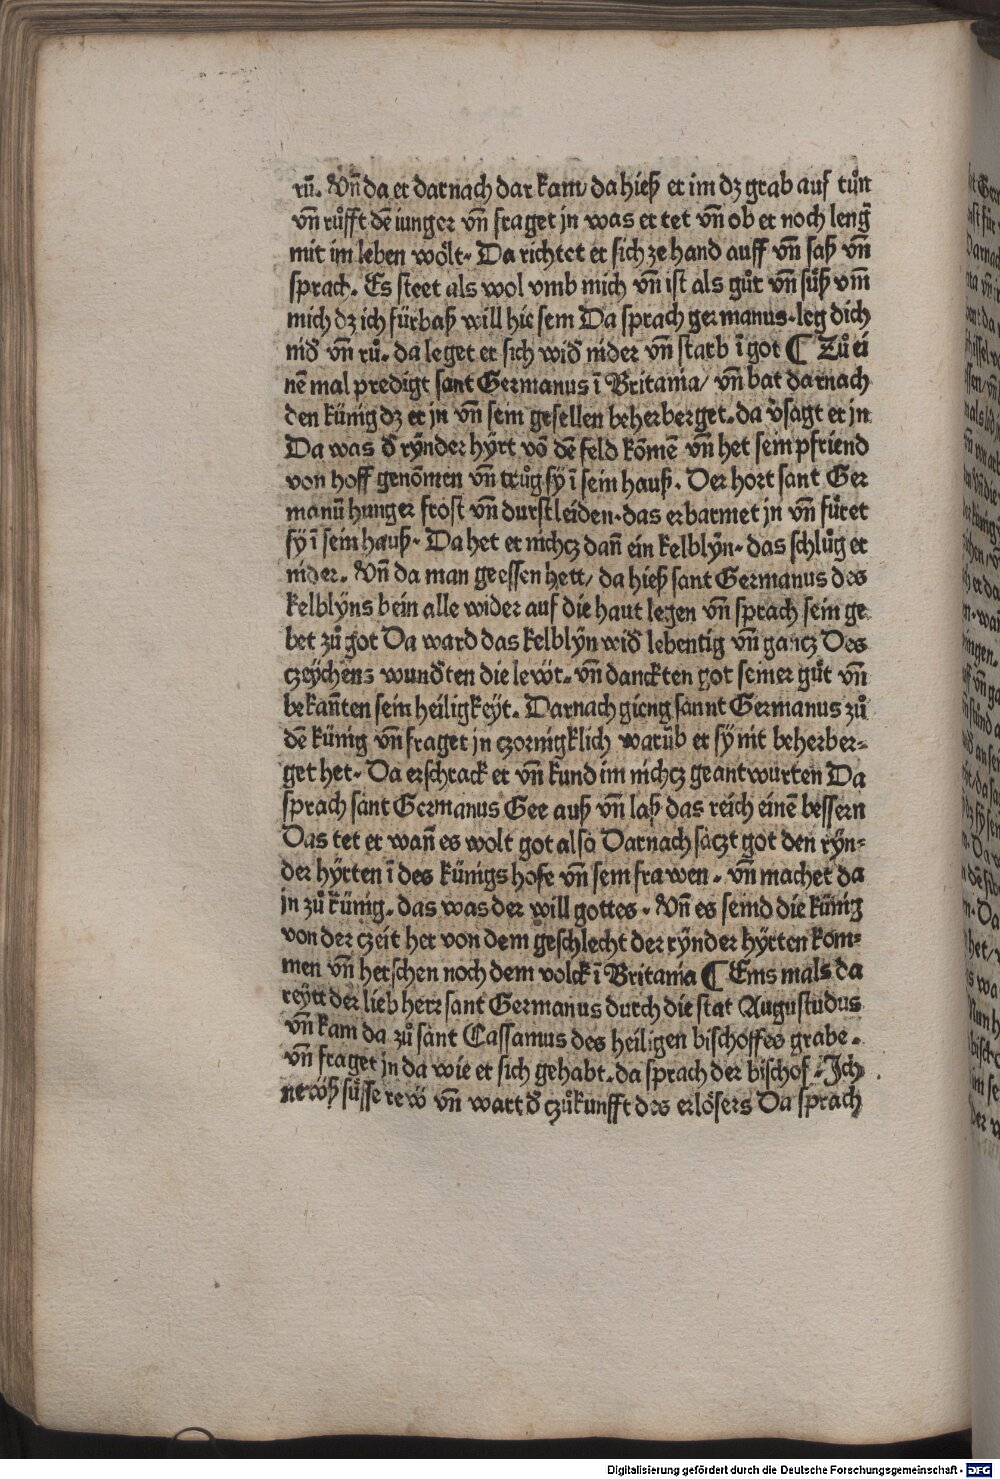 rũ. Vñ da er darnach dar kam/ da hieß er im dz grab auf tůn
vñ růfft dẽ iunger vñ fraget jn was er tet vñ ob er noch leng̃
mit im leben wölt. Da richtet er sich ze hand auff vñ saß vñ
sprach. Es steet als wol vmb mich vñ ist als gůt vñ süß vm̃
mich dz ich fürbaß will hie sein Da sprach germanus. leg dich
nid̃ vñ rů. da leget er sich wid̃ nider vñ starb ĩ got ¶ Zů ei
nẽ mal predigt sant Germanus ĩ Britania/ vñ bat darnach
den künig dz er jn vñ sein gesellen beherberget. da ṽsagt er jn
Da was d̃ rÿnder hÿrt võ dẽ feld kõmẽ vñ het sein pfriend
von hoff genõmen vñ trůg sÿ ĩ sein hauß. Der hort sant Ger
manũ hunger frost vñ durst leiden. das erbarmet jn vñ fůret
sÿ ĩ sein hauß. Da het er nichcz dañ ein kelblÿn. das schlůg er
nider. Vñ da man geessen hett/ da hieß sant Germanus des
kelblÿns bein alle wider auf die haut legen vñ sprach sein ge
bet zů got Da ward das kelblÿn wid̃ lebentig vñ gancz Des
czeÿchens wund̃ten die lewt. vñ danckten got seiner gůt vñ
bekañten sein heiligkeÿt. Darnach gieng sannt Germanus zů
dẽ künig vñ fraget jn czornigklich warũb er sÿ nit beherber-
get het. Da erschrack er vñ kund im nichcz geantwurten Da
sprach sant Germanus Gee auß vñ laß das reich einẽ bessern
Das tet er wañ es wolt got also Darnach saczt got den rÿn-
der hÿrten ĩ des künigs hofe vñ sein frawen. vñ machet da
jn zů künig. das was der will gottes. Vñ es seind die künig
von der czeit her von dem geschlecht der rÿnder hÿrten kom-
men vñ herschen noch dem volck ĩ Britania ¶ Eins mals da
reÿtt der lieb herr sant Germanus durch die stat Augustudus
vñ kam da zů sant Cassianus des heiligen bischoffes grabe.
vñ fraget jn da wie er sich gehabt. da sprach der bischof. Jch
newß süsse rew vñ wart d̃ czůkunfft des erlösers Da sprach
Digitalisierung gefördert durch die Deutsche Forschungsgemeinschaft - DFG